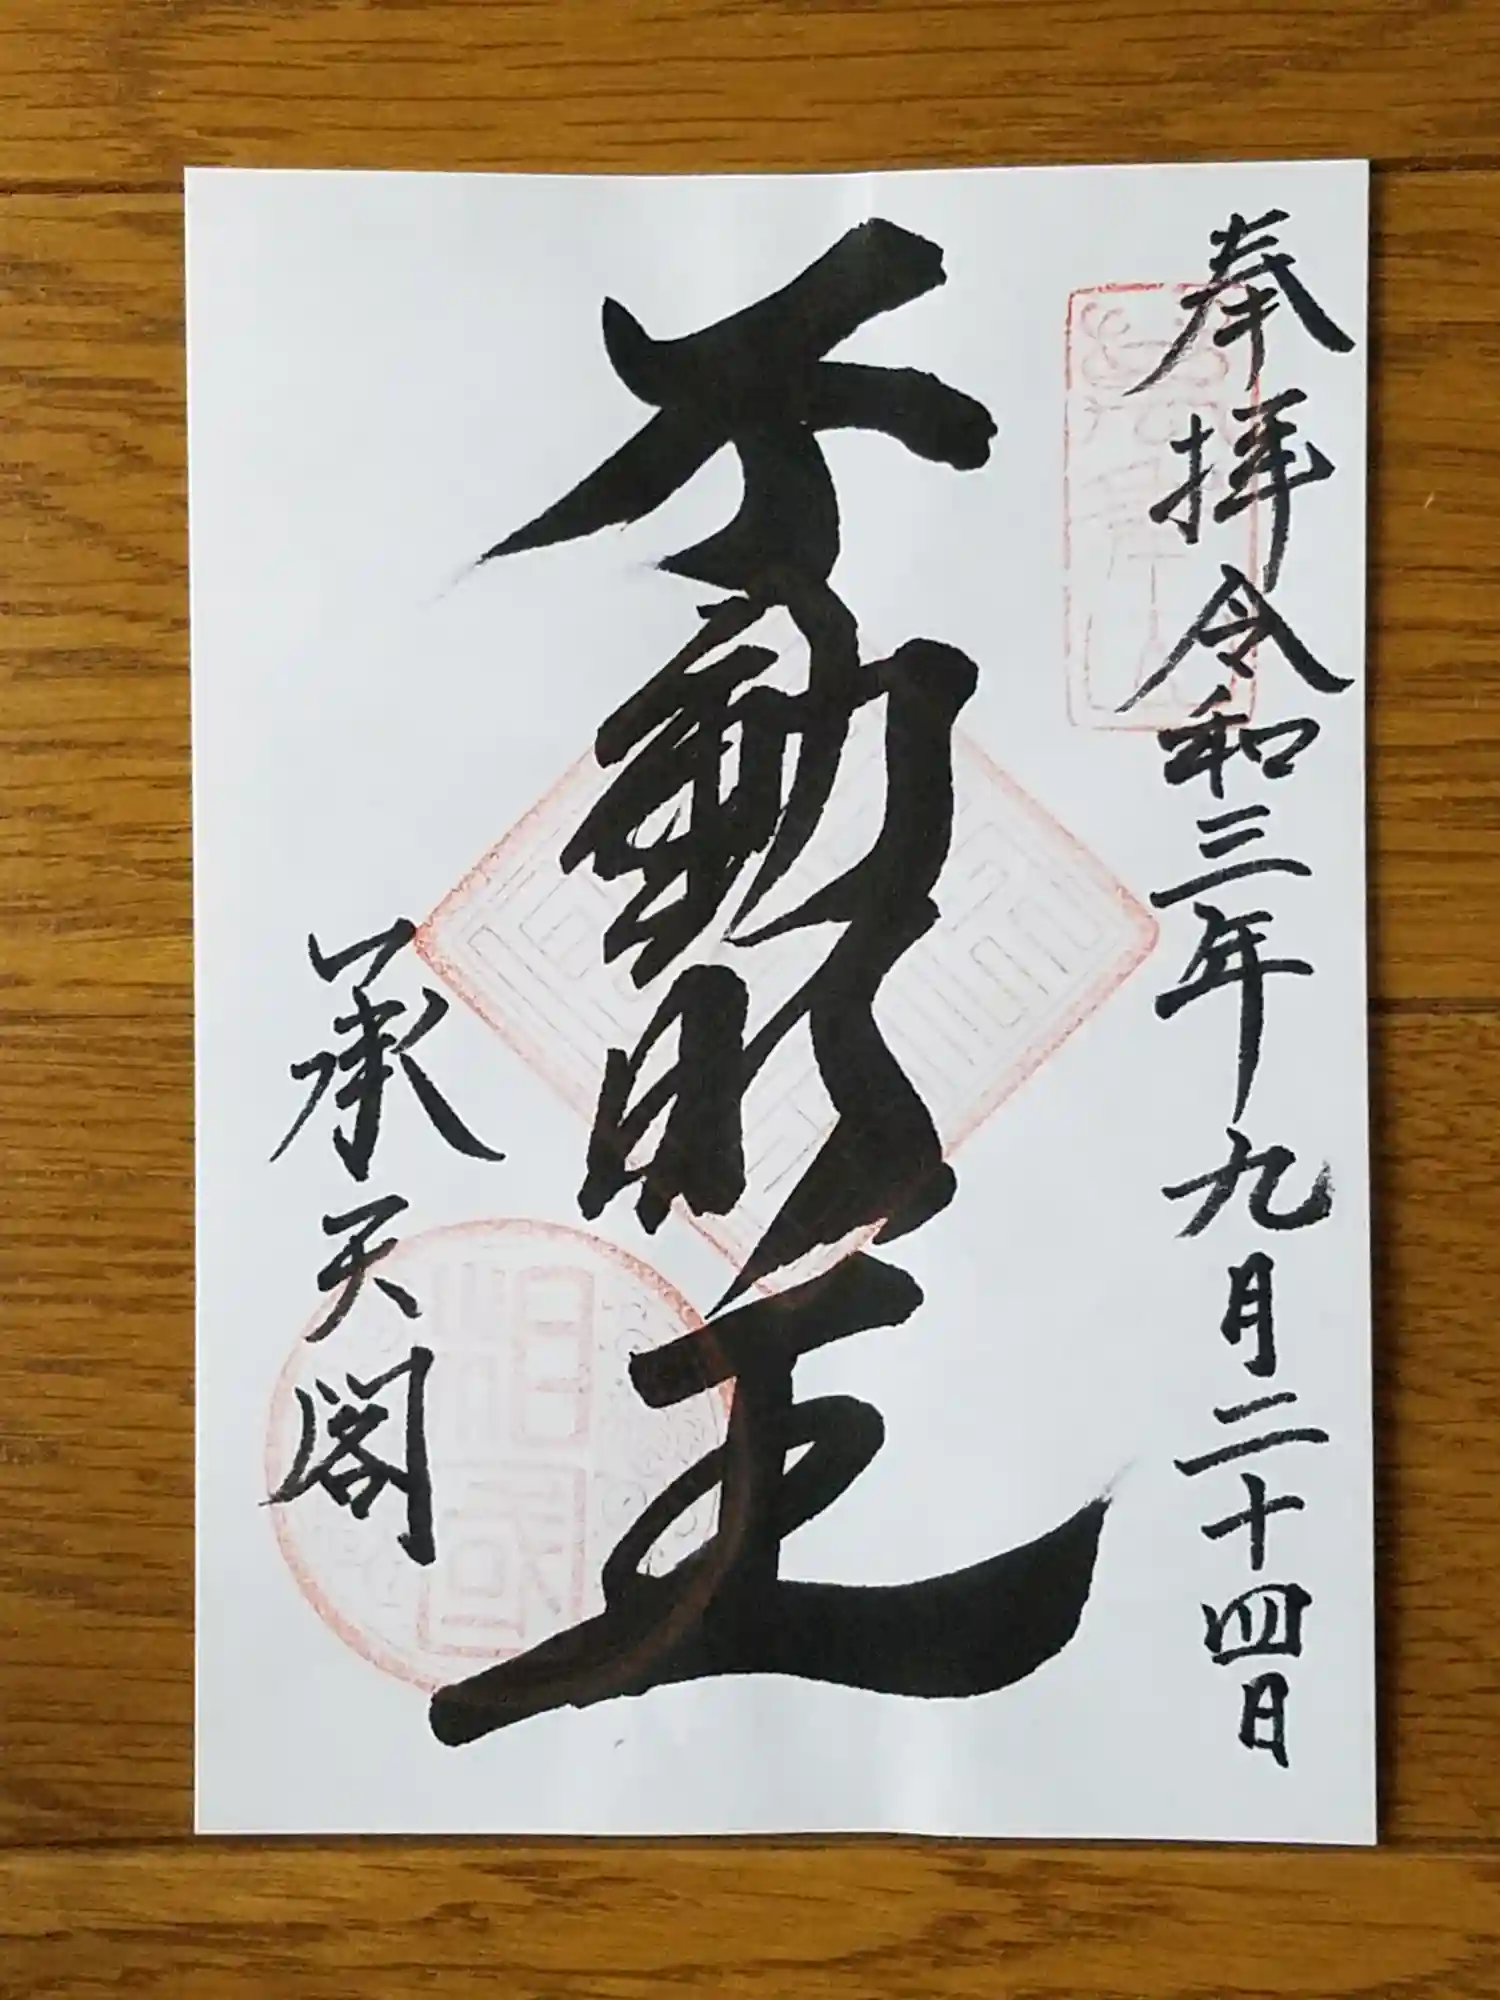 奉拝令和三年九月二十四日
不動明王
承天閣
相国